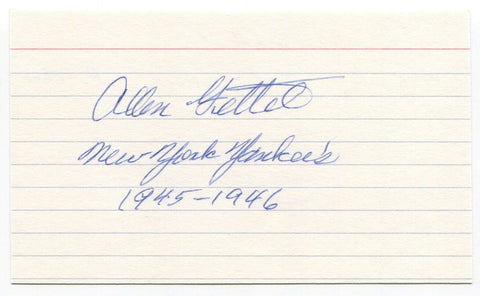 Allen Gettel
New York Yankees
1945-1946